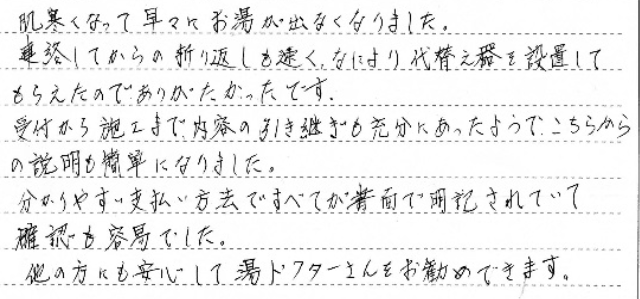 肌寒くなって早々にお湯が出なくなりました。
連絡してからの折り返しも速く、なにより代替え器を設置して
もらえたのでありがたかったです。
受付から施工まで、内容の引き継ぎも充分にあったようで、こちらから
の説明も簡単になりました。
分かりやすい支払い方法ですべてが書面で明記されていて
確認も容易でした。
他の方にも安心して湯ドクターさんをお勧めできます。